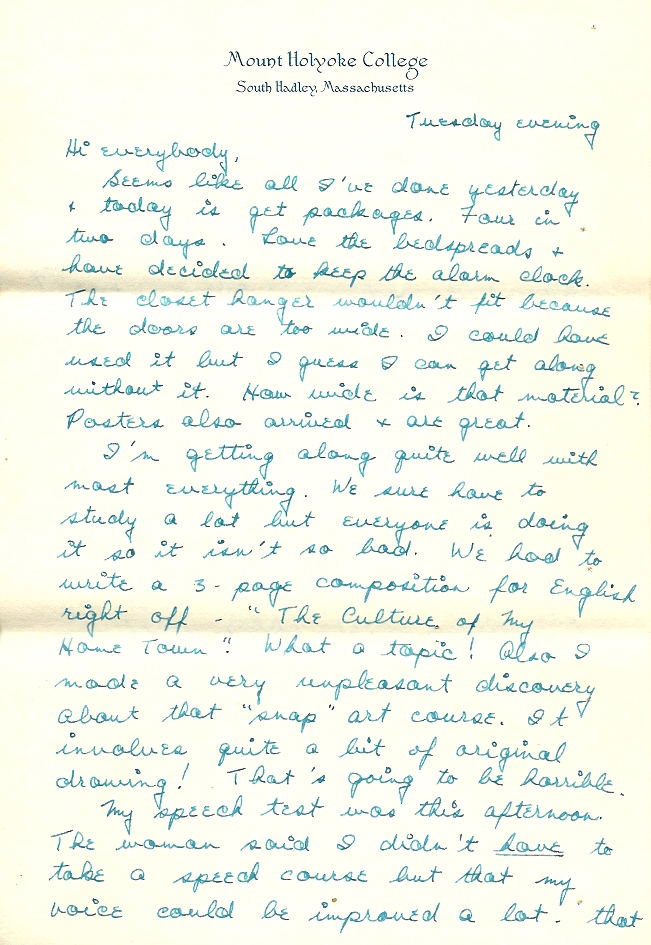 Mount Holyoke College
South Hadley, Massachusetts
Tuesday evening
Hi everybody,
Seems like all I've done yesterday
+ today is get packages. Four in
two days. Love the bedspreads +
have decided to keep the alarm clock.
The closet hanger wouldn't fit because
the doors are too wide. I could have
used it but I guess I can get along
without it. How wide is that material?
Posters also arrived + are great.
I'm getting along quite well with
most everything. We sure have to
study a lot but everyone is doing
it so it isn't so bad. We had to
write a 3-page composition for English
right off - "The Culture of My
Home Town". What a topic! Also I
made a very unpleasant discovery
about that "snap" art course. It
involves quite a bit of original
drawing! That's going to be horrible.
My speech test was this afternoon.
The woman said I didn't have to
take a speech course but that my
voice could be improved a lot - that